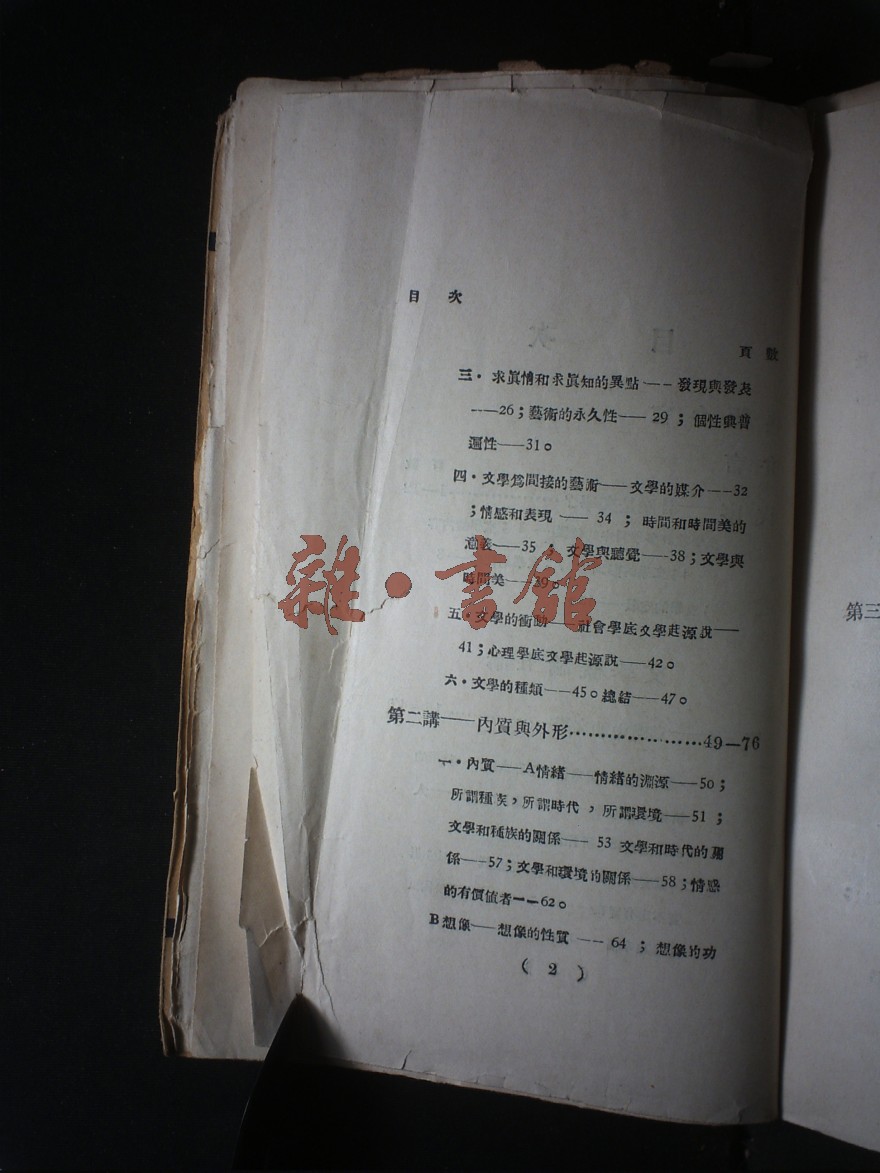 目 次
頁數
三·求眞情和求眞知的異點——發現與發表
——26；藝術的永久性——29；個性與普
遍性——31。
四·文學爲間接的藝術——文學的媒介——32
；情感和表現——34；時間和時間美的
意義——35；文學與聽覺——38；文學與
時間美——39。
雜·書館
五·文學的衝動——社會學底文學起源說——
41；心理學底文學起源說——42。
六·文學的種類——45。總結——47。
第二講——內質與外形…………………49—76
一·內質——A情緒——情緒的淵源——50；
所謂種族，所謂時代，所謂環境——51；
文學和種族的關係——53 文學和時代的關
係——57；文學和環境的關係——58；情感
的有價值者——62。
B想像——想像的性質——64；想像的功
( 2 )
第三